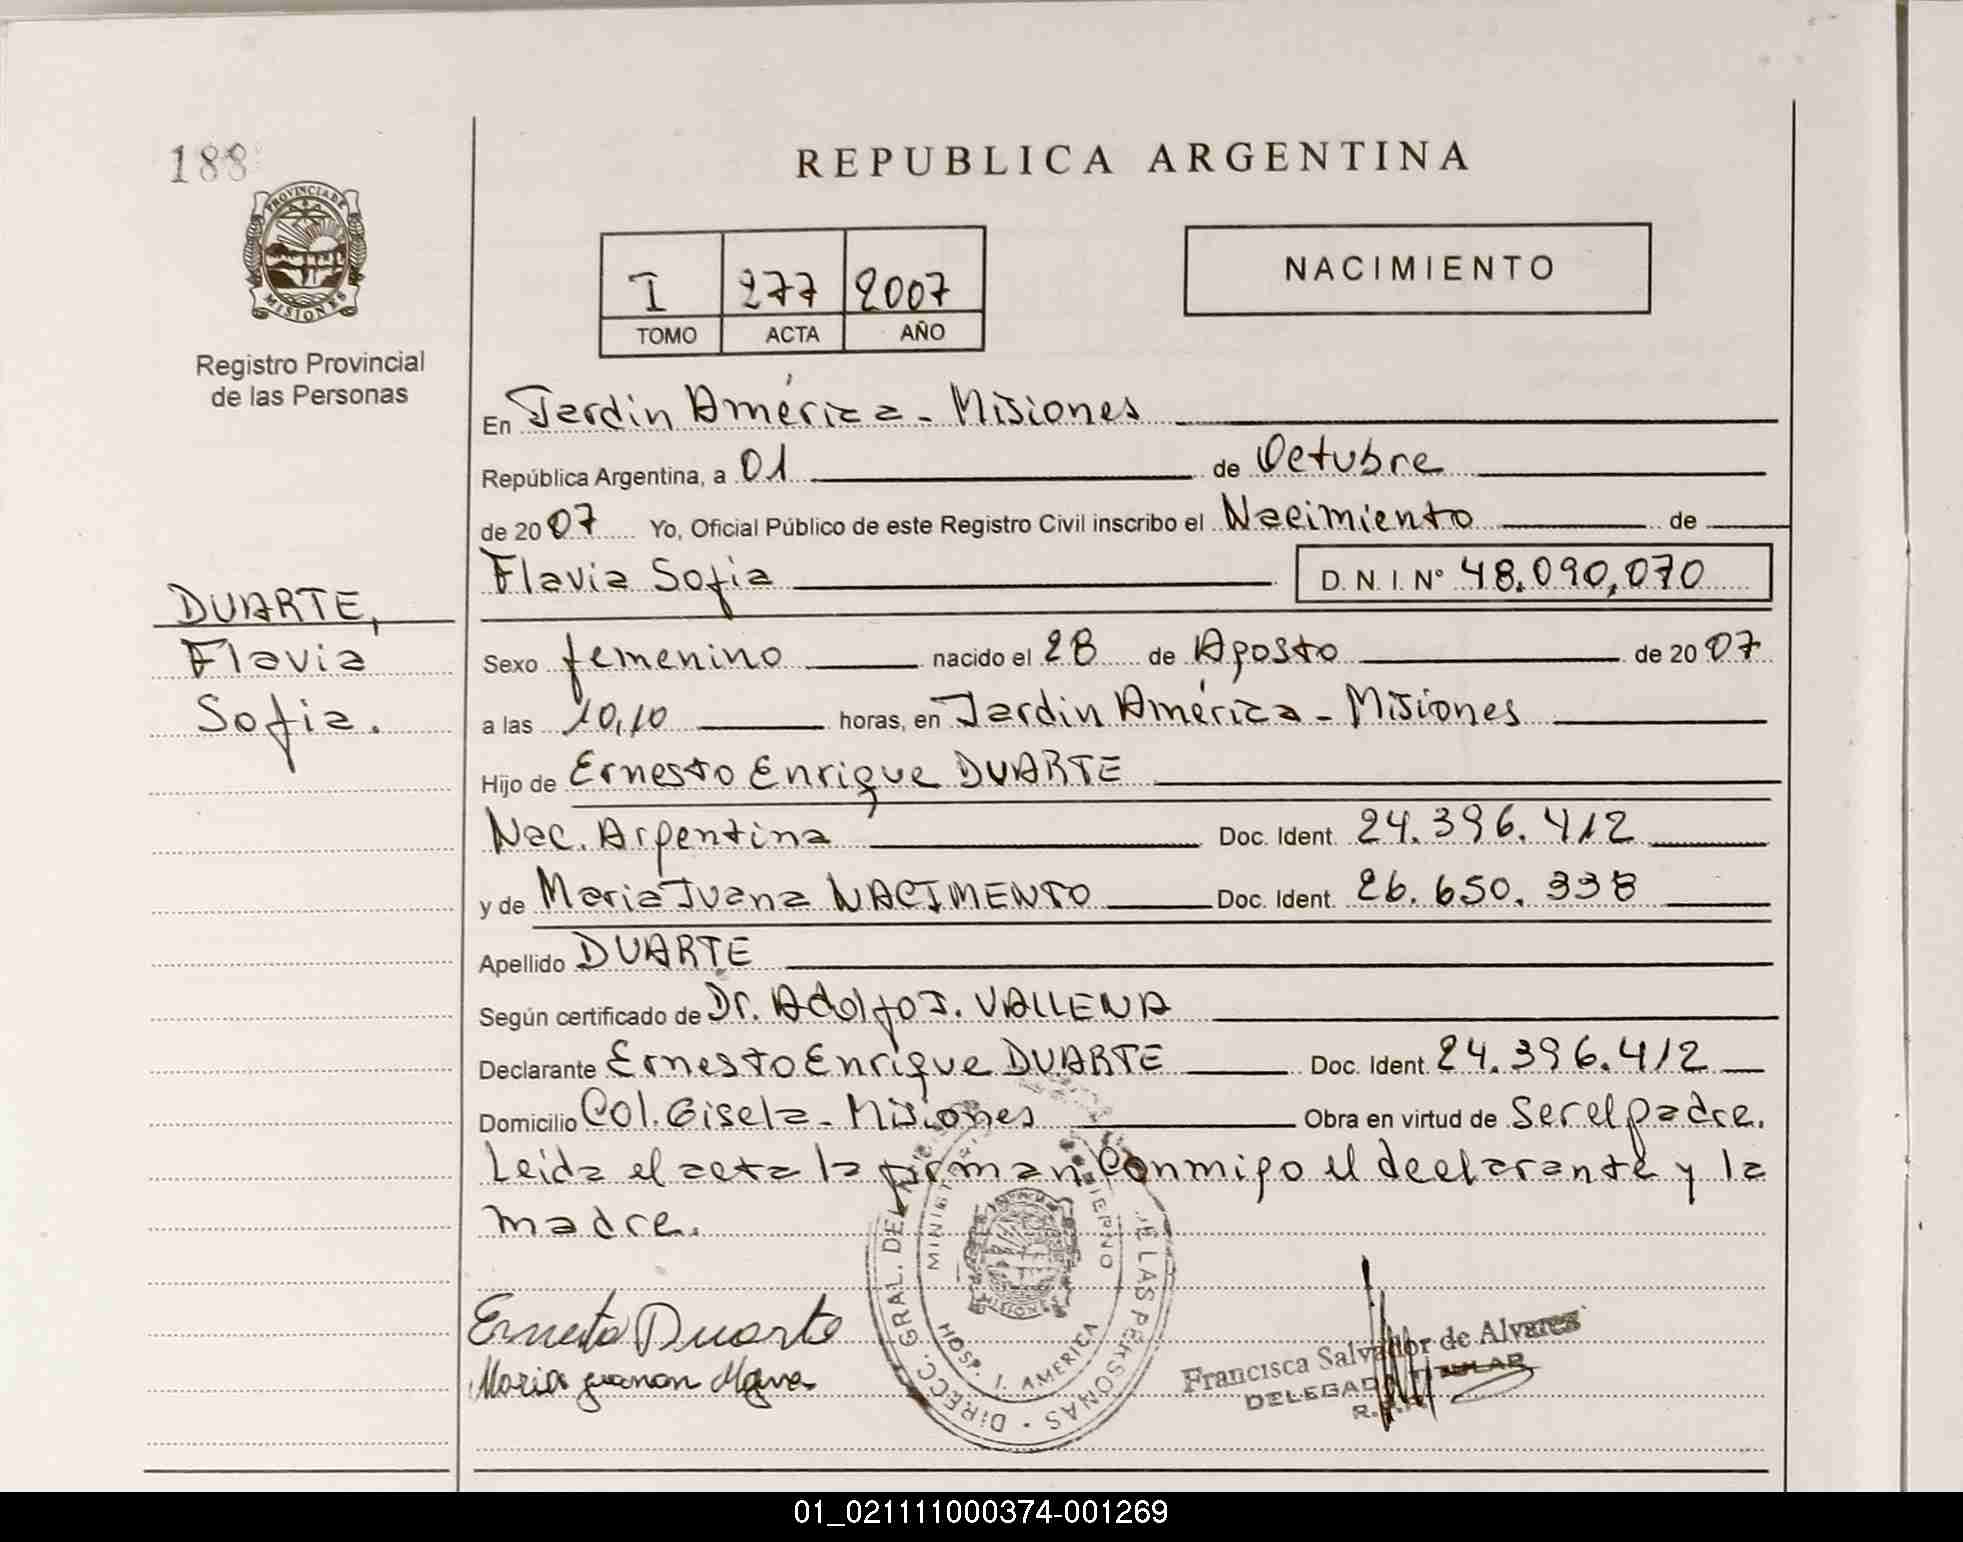 188
PROVINCIA DE
MISIONES
Registro Provincial
de las Personas
DUARTE,
Flavia
Sofia.
REPUBLICA ARGENTINA
I 277 2007
TOMO ACTA AÑO
NACIMIENTO
En Jardin América - Misiones
República Argentina, a 01 de Octubre
de 2007 Yo, Oficial Público de este Registro Civil inscribo el Nacimiento de
Flavia Sofia D. N. I. Nº 48.090,070
Sexo femenino nacido el 28 de Agosto de 2007
a las 10,10 horas, en Jardin América - Misiones
Hijo de Ernesto Enrique DUARTE
Nac. Argentina Doc. Ident. 24.396.412
y de Maria Juana NACIMENTO Doc. Ident. 26.650.338
Apellido DUARTE
Según certificado de Dr. Adolfo J. VALLENA
Declarante Ernesto Enrique DUARTE Doc. Ident. 24.396.412
Domicilio Col. Gisela - Misiones Obra en virtud de Ser el padre.
Leida el acta la firman Conmigo el declarante y la
madre.
DIRECC. GRAL. DEL DE LAS PERSONAS
MINISTERIO GOBIERNO
MISIONES
HOSP. J. AMERICA
Ernesto Duarte
Maria
Francisca Salvador de Alvarez
DELEGADA TITULAR
01_021111000374-001269